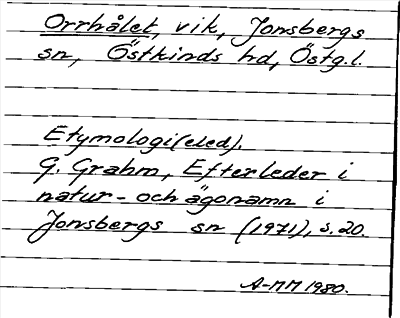 Orrhålet, vik, Jonsbergs
sn, Östkinds hd, Östg.l.
Etymologi (eled).
G. Grahm, Efterleder i
natur- och ägonamn i
Jonsbergs sn (1971), s. 20.
A-MM 1980.